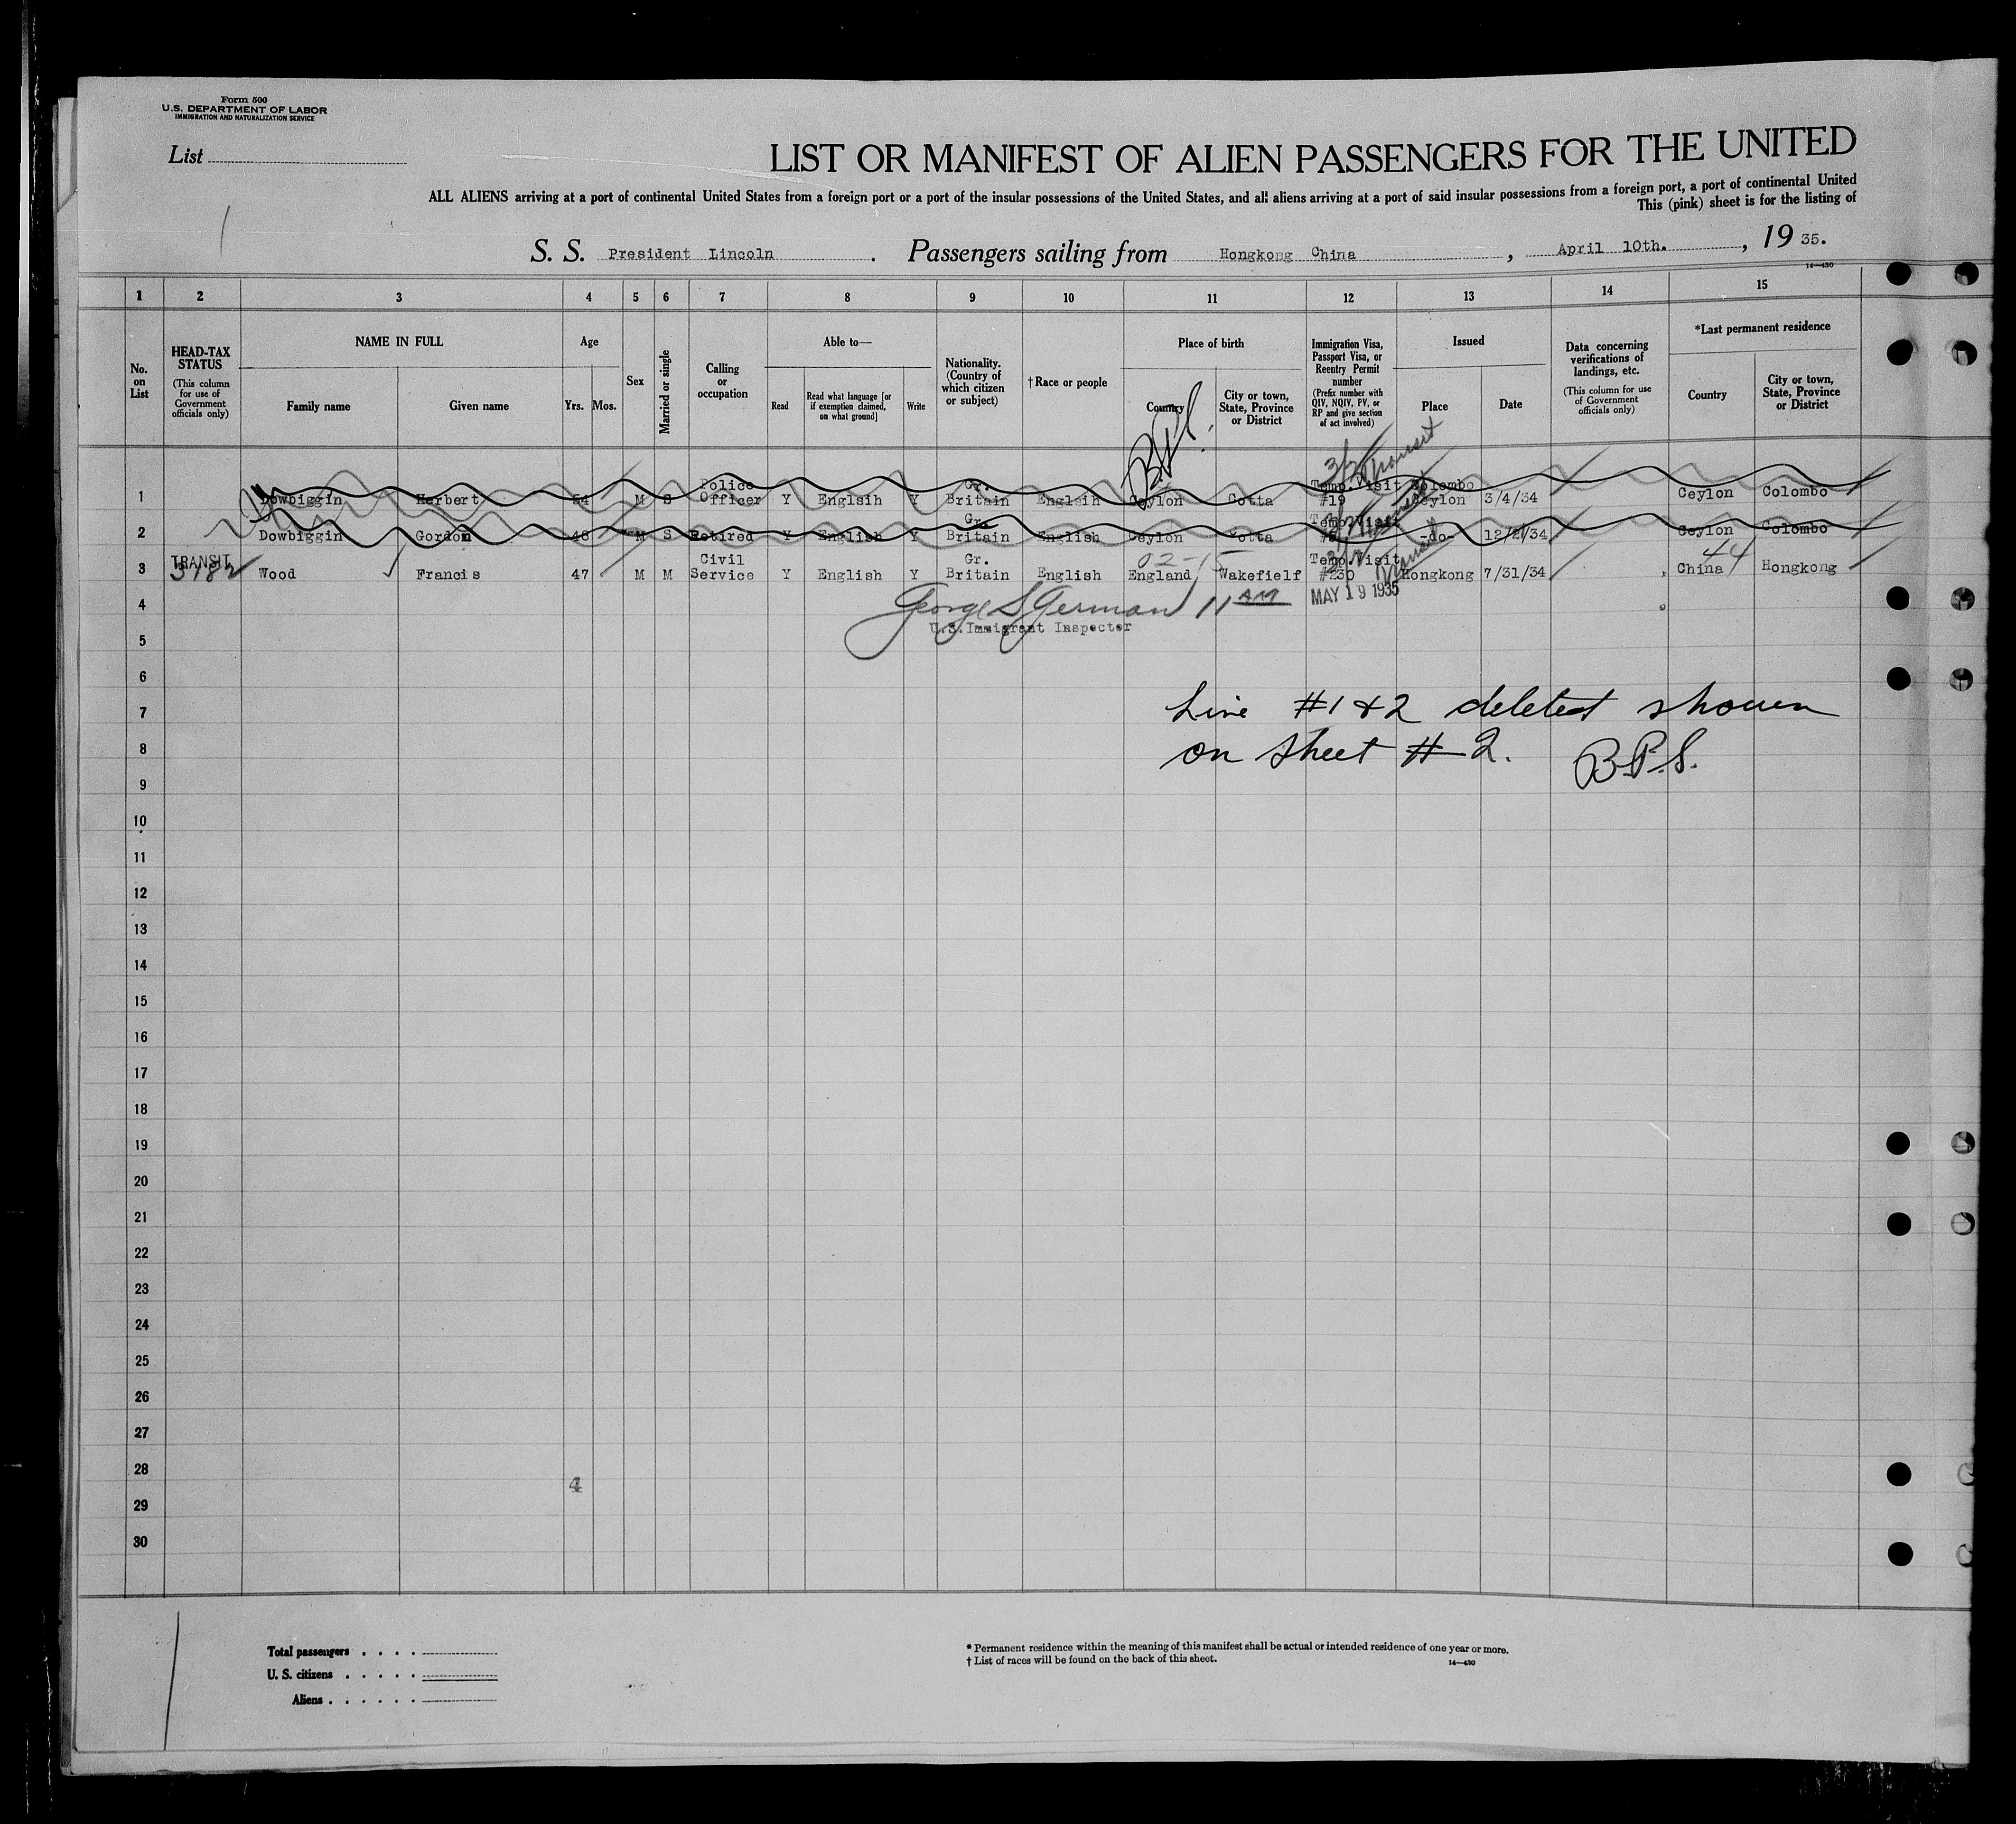 Form 500
U.S. DEPARTMENT OF LABOR
IMMIGRATION AND NATURALIZATION SERVICE
List
LIST OR MANIFEST OF ALIEN PASSENGERS FOR THE UNITED
ALL ALIENS arriving at a port of continental United States from a foreign port or a port of the insular possessions of the United States, and all aliens arriving at a port of said insular possessions from a foreign port, a port of continental United
This (pink) sheet is for the listing of
S. S. President Lincoln. Passengers sailing from Hongkong China, April 10th., 19 35.
14—430
1 2 3 4 5 6 7 8 9 10 11 12 13 14 15
No. on List
HEAD-TAX STATUS
(This column for use of Government officials only)
NAME IN FULL
Family name
Given name
Age
Yrs. Mos.
Sex
Married or single
Calling or occupation
Able to—
Read
Read what language [or if exemption claimed, on what ground]
Write
Nationality. (Country of which citizen or subject)
†Race or people
Place of birth
Country
City or town, State, Province or District
Immigration Visa, Passport Visa, or Reentry Permit number
(Prefix number with QIV, NQIV, PV, or RP and give section of act involved)
Issued
Place
Date
Data concerning verifications of landings, etc.
(This column for use of Government officials only)
*Last permanent residence
Country
City or town, State, Province or District
3/2 Transit
1 Dowbiggin Herbert 54 M S Police Officer Y Englsih Y Gr. Britain Englsih Ceylon Cotta Temp.Visit #19 Colombo Ceylon 3/4/34 Ceylon Colombo
2 Dowbiggin Gordon 48 M S Retired Y English Y Gr. Britain English Ceylon Cotta Temp.Visit -do- 12/2/34 Ceylon Colombo
TRANSIT
3182
02-15
44
3 Wood Francis 47 M M Civil Service Y English Y Gr. Britain English England Wakefielf Temp.Visit #230 Hongkong 7/31/34 China Hongkong
4
George S German 11 AM MAY 19 1935
U.S.Immigrant Inspector
5
6
7
Line #1 & 2 deleted shown
8
on sheet #2. B.P.S.
9
10
11
12
13
14
15
16
17
18
19
20
21
22
23
24
25
26
27
28
4
29
30
Total passengers . . . .
U. S. citizens . . . . .
Aliens . . . . . .
* Permanent residence within the meaning of this manifest shall be actual or intended residence of one year or more.
† List of races will be found on the back of this sheet.
14—430